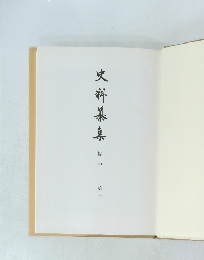 史料纂集